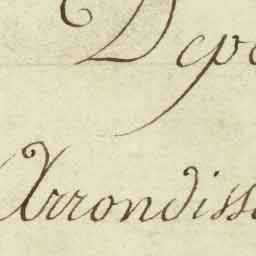 Dépa
Arrondiss